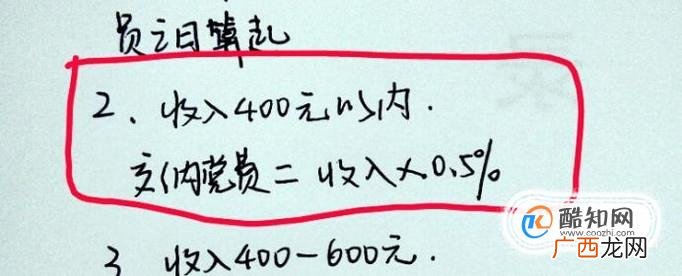 员之日算起
2、收入400元以内.
交纳党费=收入×0.5%
3 收入400-600元.
酷知网
www.coozhi.com
广西龙网